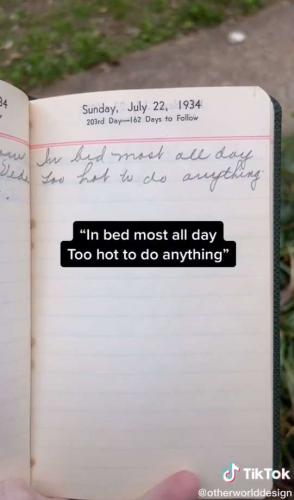 Sunday, July 22, 1934
203rd Day—162 Days to Follow
In bed most all day
Too hot to do anything
"In bed most all day
Too hot to do anything"
TikTok
@otherworlddesign